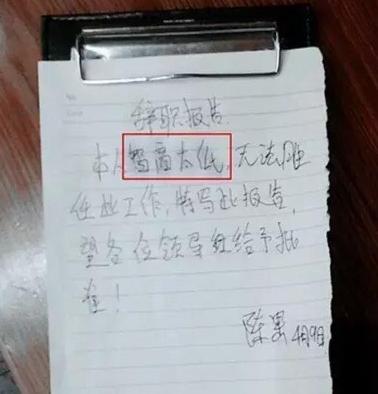 辞职报告
本人智商太低,无法胜
任此工作,特写此报告,
望各位领导能给予批
准!
陈昊 4月9日